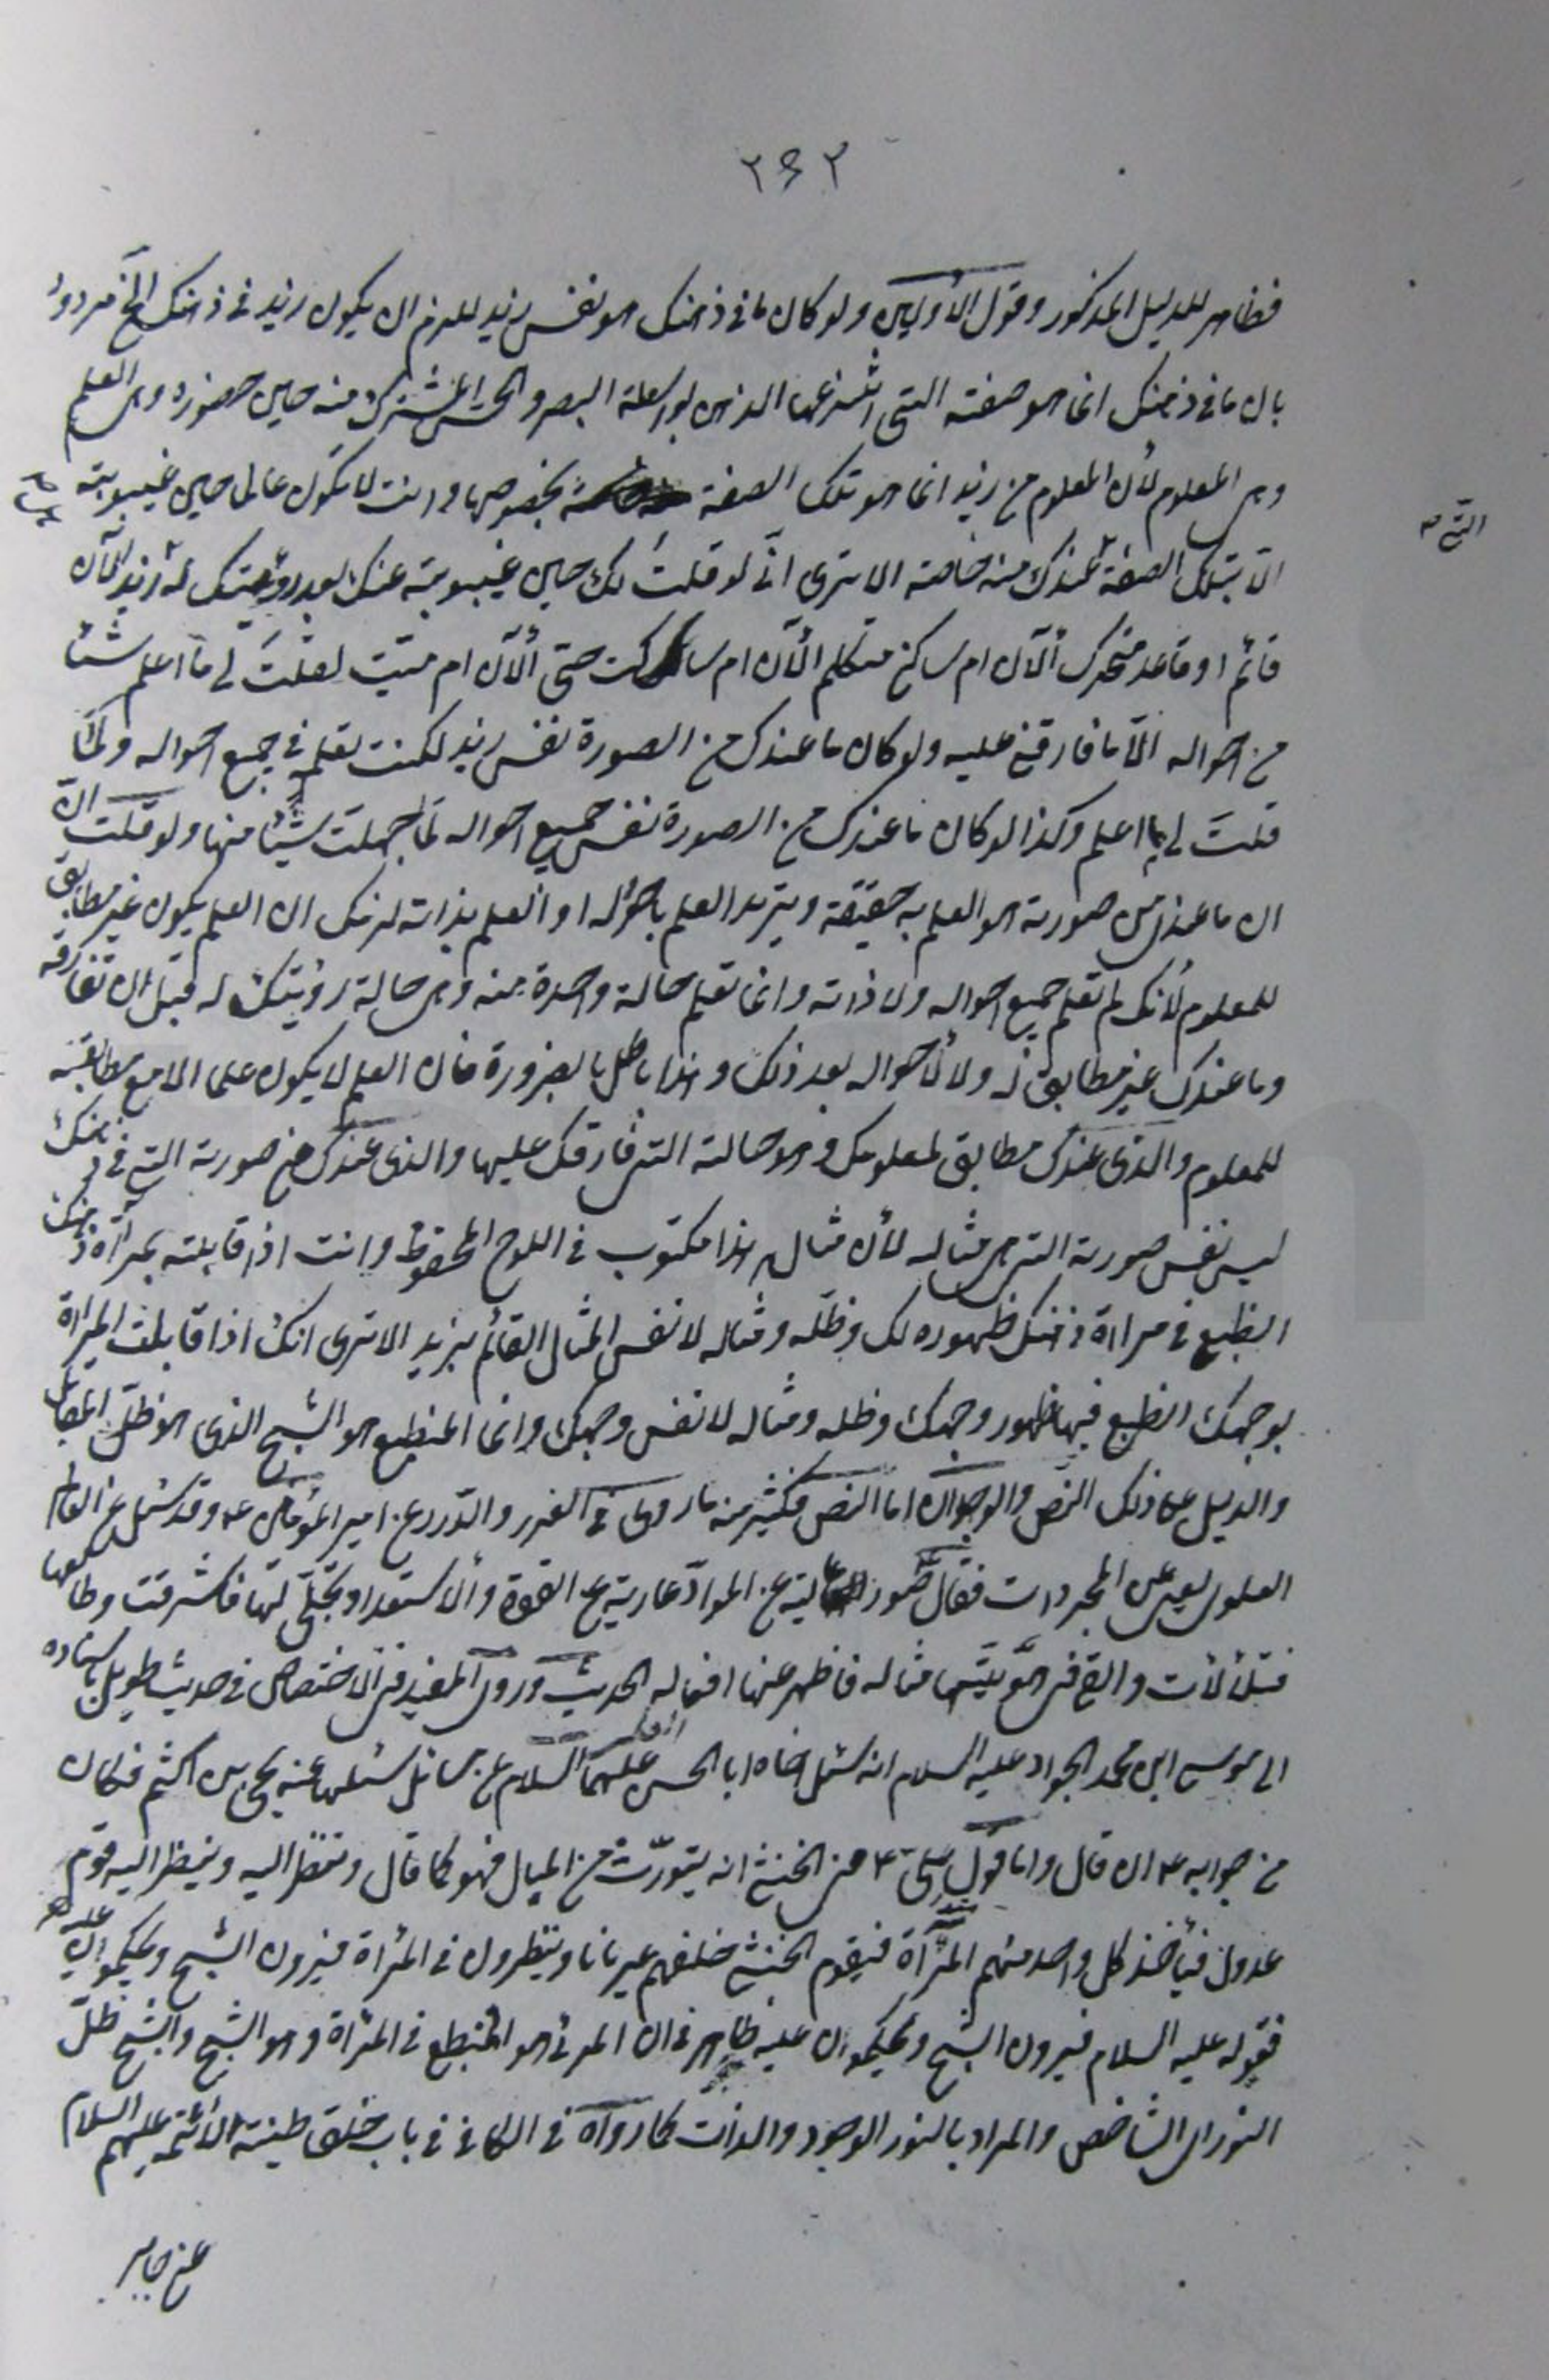 ٢۶٢
فظاهر للدليل المذكور وقول الأولين ولو كان ما فى ذهنك هو نفس زيد للزم ان يكون زيد فى ذهنك الخ مردود
بان ما فى ذهنك انما هو صفته التى انتزعها الذهن بواسطة البصر والحس المشترك منه حين حضوره وهى العلم
وهى المعلوم لأن المعلوم من زيد انما هو تلك الصفة بخصوصها وانت لا تكون عالما حين غيبوبته
التى
الا بتلك الصفة عندك منه خاصة الا ترى انى لو قلت لك حين غيبوبته عنك بعد رؤيتك له زيد الآن
قائم او قاعد متحرك الآن ام ساكن متكلم الآن ام ساكت حتى الآن ام ميت لقلت لى ما اعلم شيئا
من احواله الا ما فارقنى عليه ولو كان ما عندك من الصورة نفس زيد لكنت تعلم جميع احواله ولما
قلت لى ما اعلم وكذا لو كان ما عندك من الصورة نفس جميع احواله لما جهلت شيئا منها ولو قلت
ان ما عندى من صورته هو العلم به حقيقة ويريد العلم باحواله او العلم بذاته لزمك ان العلم يكون غير مطابق
للمعلوم لأنك لم تعلم جميع احواله ولا ذاته وانما تعلم حالة واحدة منه وهى حالة رؤيتك له قبل ان تفارقه
وما عندك غير مطابق له ولا لأحواله بعد ذلك وهذا باطل بالضرورة فان العلم لا يكون علما الا مع مطابقته
للمعلوم والذى عندك مطابق لمعلومك وهو حالته التى فارقك عليها والذى عندك من صورته التى فى ذهنك
ليس نفس صورته التى هى مثاله لأن مثاله هذا مكتوب فى اللوح المحفوظ وانت اذا قابلته بمرآة ذهنك
انطبع فى مراة ذهنك ظهوره لك وظله ومثاله لا نفس المثال القائم بزيد الا ترى انك اذا قابلت المراة
بوجهك انطبع فيها ظهور وجهك وظله ومثاله لا نفس وجهك وانما المنطبع هو الشبح الذى هو ظل المقابل
والدليل على ذلك النص والوجدان اما النص فكثير منه ما روى فى الغرر والدرر عن امير المؤمنين ع وقد سئل عن العالم
العلوى يعنى المجردات فقال صور عالية عن المواد عارية عن القوة والاستعداد تجلى لها فاشرقت وطالعها
فتلألأت والقى فى هويتها مثاله فاظهر عنها افعاله الحديث وروى المفيد فى الاختصاص فى حديث طويل باسناده
الى موسى ابن محمد الجواد عليه السلام انه سئل اخاه ابا الحسن عليهما السلام عن مسائل سئلها عنه يحيى بن اكثم فكان
من جوابه ع ان قال واما قول على ع فى الخنثى انه يتورث من المبال فهو كما قال وتنظر اليه وينظر اليه قوم
عدول فيأخذ كل واحد منهم المرآة فيقوم الخنثى خلفهم عريانا وينظرون فى المرآة فيرون الشبح ويحكمون عليه
فقوله عليه السلام فيرون الشبح ويحكمون عليه ظاهر فى ان المرئى هو المنطبع فى المرآة وهو الشبح والشبح ظل
النور اى الشاخص والمراد بالنور الوجود والذات كما رواه فى الكافى فى باب خلق طينة الأئمة عليهم السلام
عن جابر